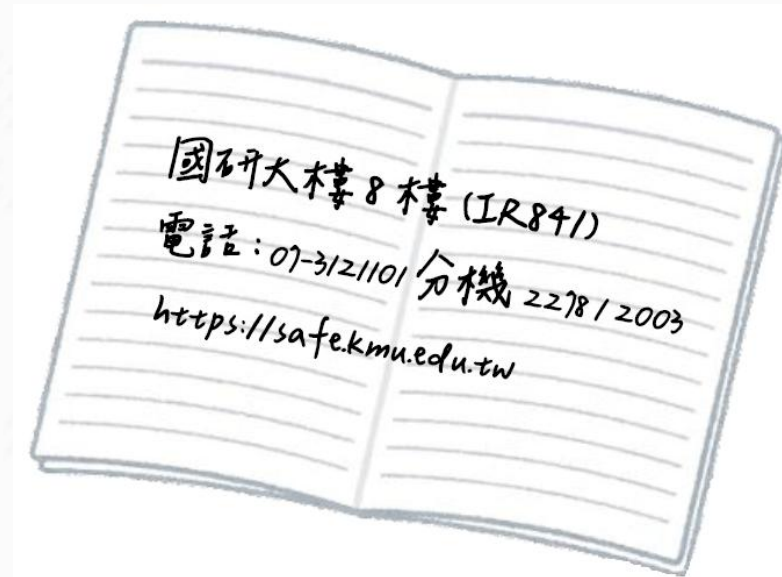 國研大樓8樓(IR841)
電話:07-3121101分機2278/2003
https://safe.kmu.edu.tw